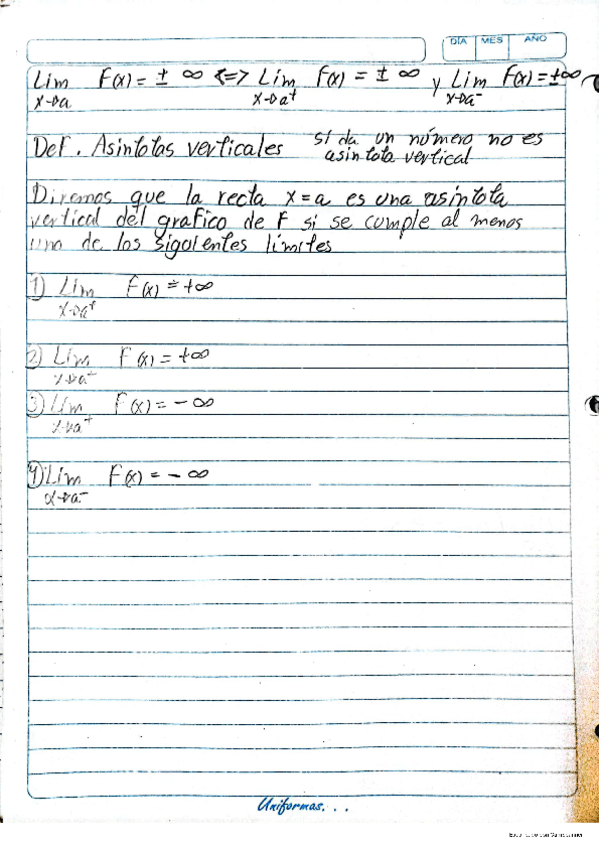 DÍA MES AÑO
Lim F(x) = ± ∞ <=> Lim F(x) = ± ∞ y Lim F(x) = ±∞
x→a x→a⁺ x→a⁻
Def. Asintotas verticales si da un número no es
asintota vertical
Diremos que la recta x=a es una asíntota
vertical del grafico de F si se cumple al menos
uno de los siguientes límites
1) Lim F(x) = +∞
x→a⁺
2) Lim F(x) = +∞
x→a⁻
3) Lim F(x) = -∞
x→a⁺
4) Lim F(x) = -∞
x→a⁻
Uniformas...